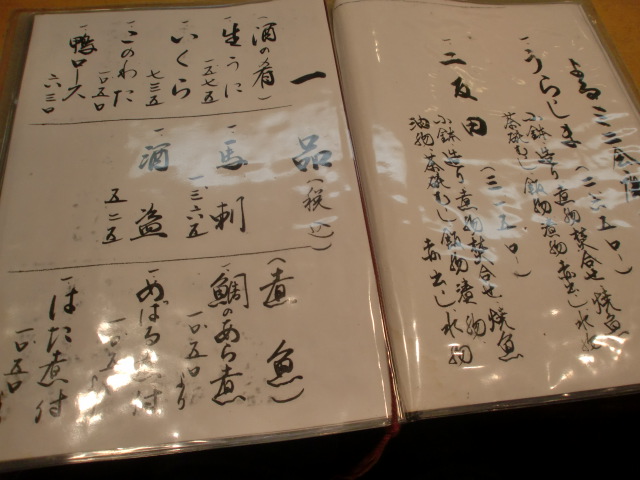 一うらしま
(二六五〇)
小鉢造り煮物焚合せ焼魚
茶碗むし飯物漬物赤出し水物
一二反田
(三一五〇)
小鉢造り煮物焚合せ焼魚
油物茶碗むし飯物漬物
赤出し水物
一品(税込)
(酒の肴)
一生うに
一五七五
一いくら
七三五
一このわた
一〇五〇
一鴨ロース
六三〇
一馬刺
一、三六五
一酒盗
五二五
(煮魚)
一鯛のあら煮
一〇五〇より
一めばる煮付
一〇五〇より
一はた煮付
一〇五〇